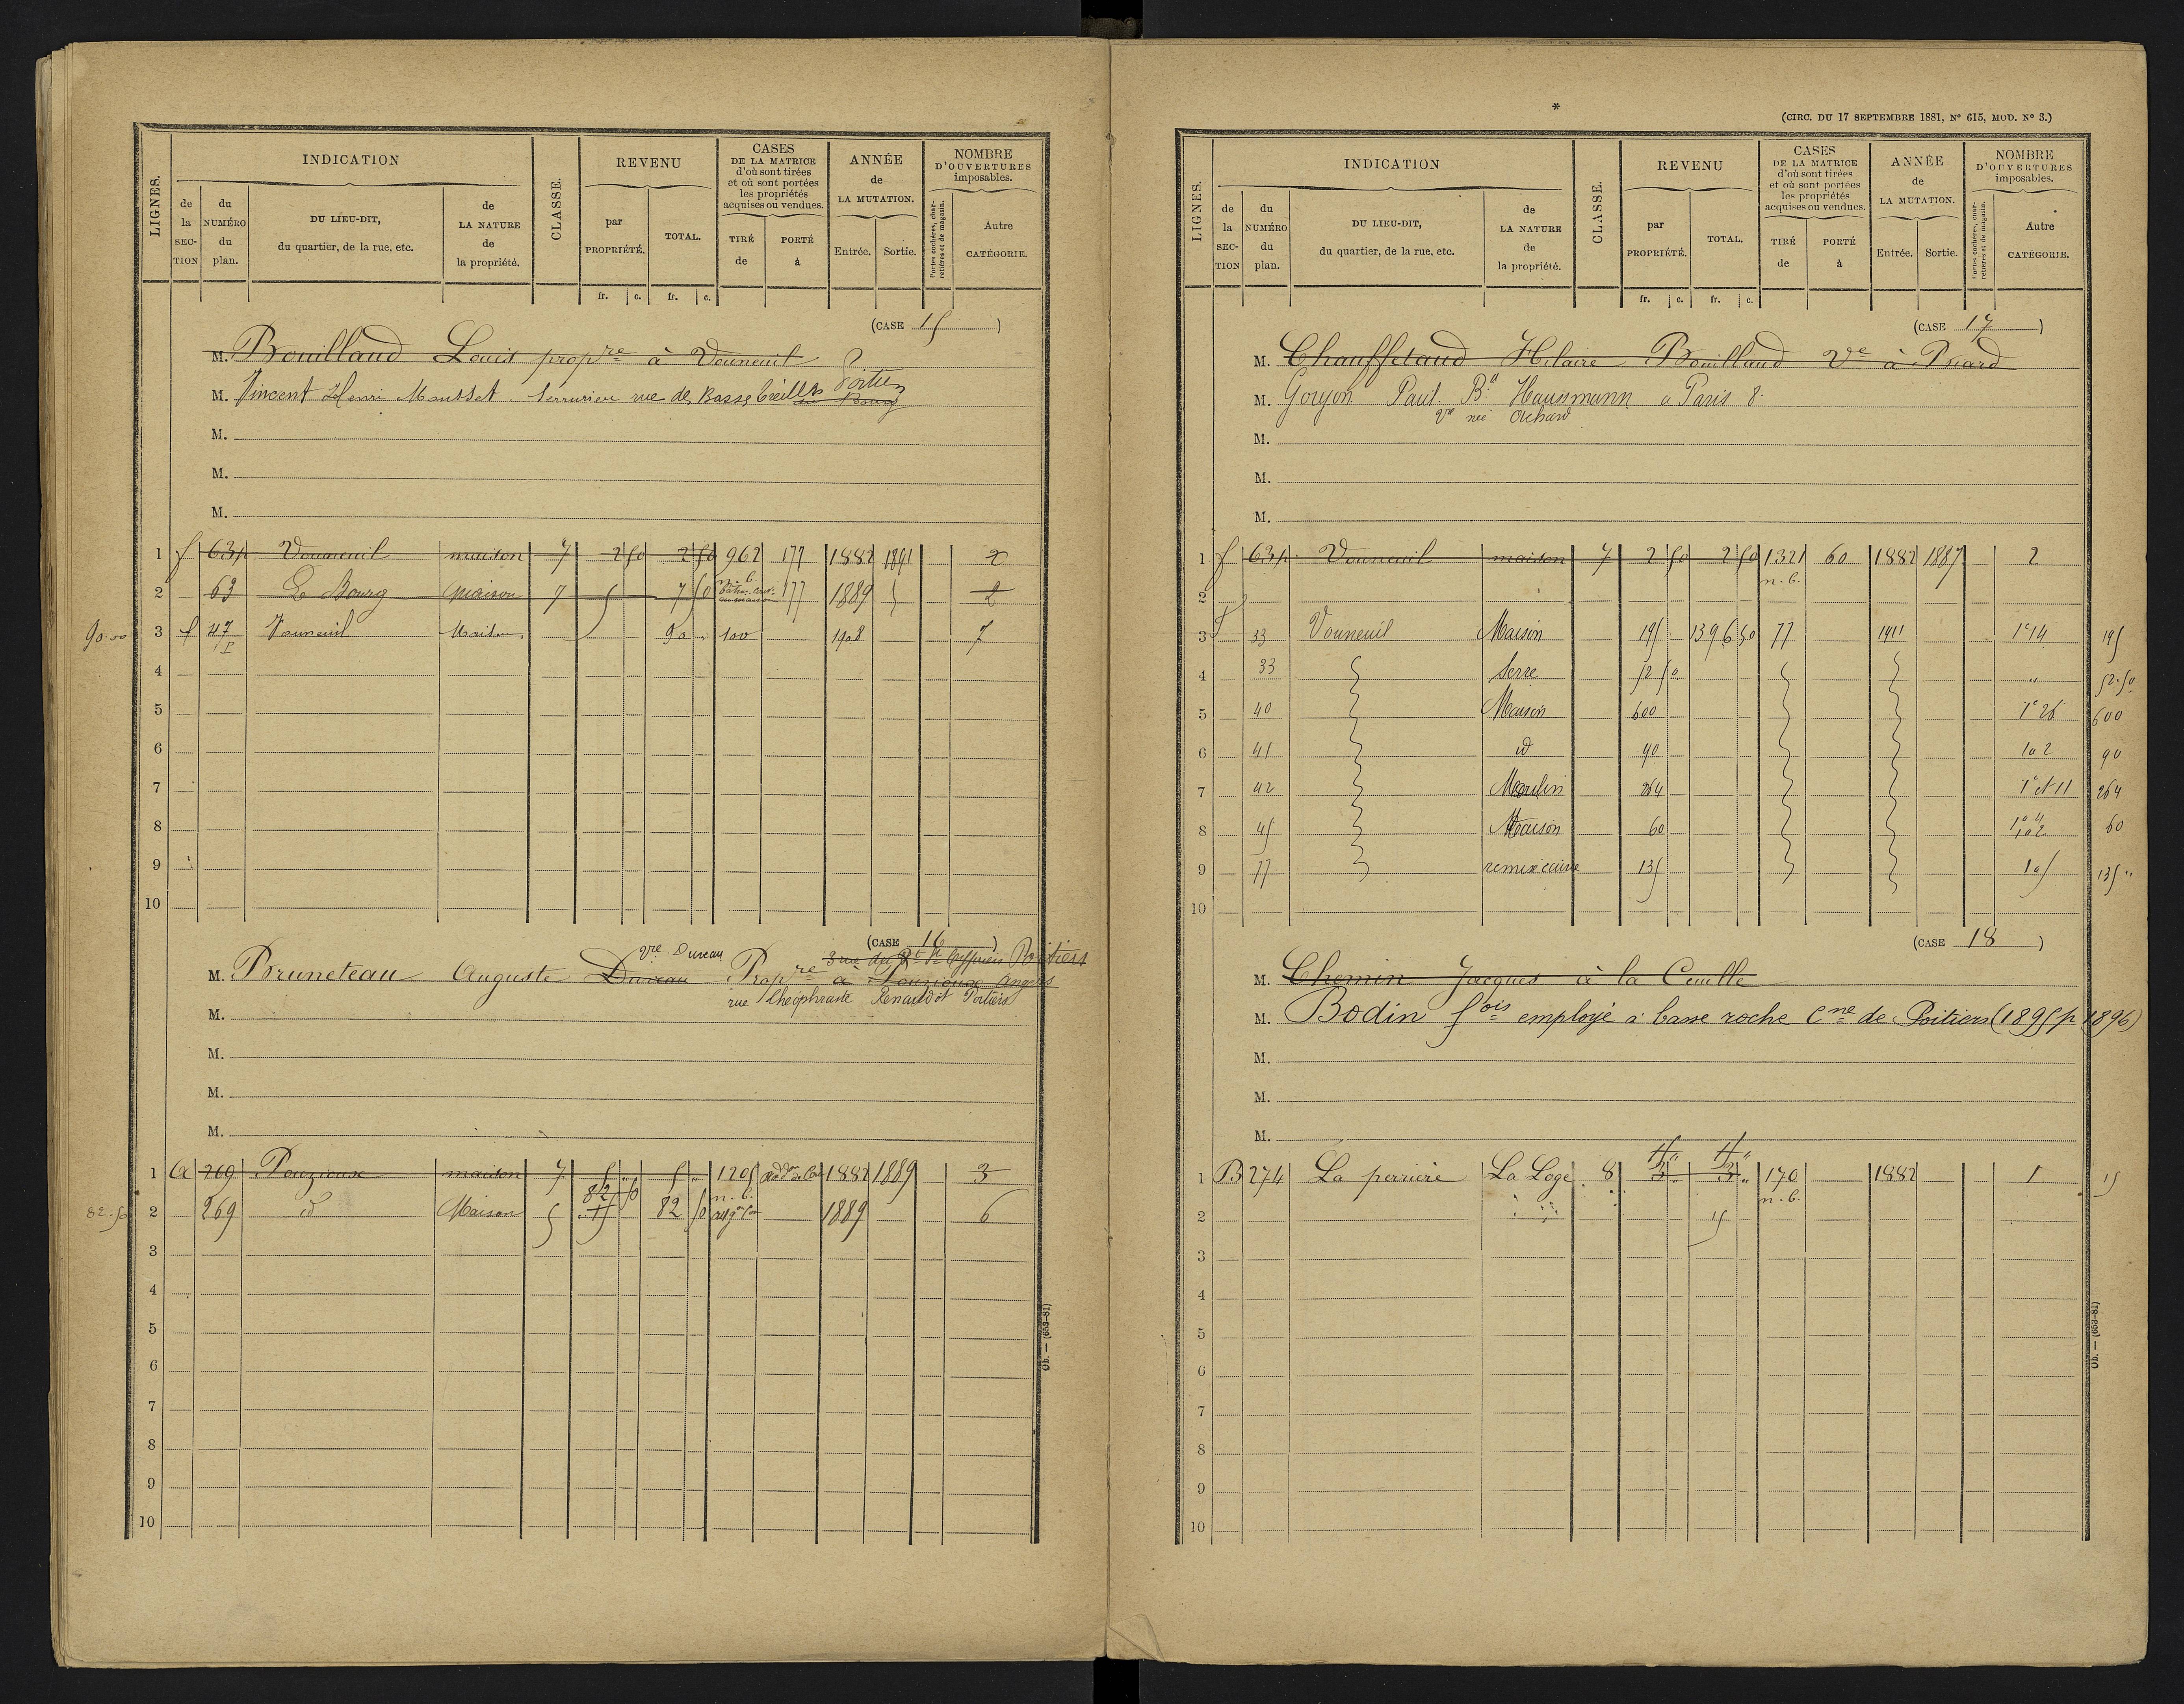 LIGNES.
INDICATION
de la SECTION
du NUMÉRO du plan.
DU LIEU-DIT, du quartier, de la rue, etc.
de LA NATURE de la propriété.
CLASSE.
REVENU
par PROPRIÉTÉ.
TOTAL.
CASES DE LA MATRICE d'où sont tirées et où sont portées les propriétés acquises ou vendues.
TIRÉ de
PORTÉ à
ANNÉE de LA MUTATION.
Entrée.
Sortie.
NOMBRE D'OUVERTURES imposables.
Portes cochères, charretières et de magasin.
Autre CATÉGORIE.
fr. c. fr. c.
(CASE 15)
M. Bouilland Louis prop^re à Vouneuil
M. Vincent Henri Mousset serrurier rue des Basses Treilles Poitiers
Bourg
M.
M.
M.
1 f 63p Vouneuil maison 7 2 50 2 50 962 177 1882 1891 2
2 63 Le Bourg Maison 7 7 50 n. c. 177 1889 2
90.00 3 f 47 Vouneuil Maison 90 " 100 1908 7
4
5
6
7
8
9
10
(CASE 16)
v^ve Dureau 3 rue du Poitiers
M. Bruneteau Auguste Dureau Prop^re à Pouzioux Angers
rue Théophraste Renaudot Poitiers
M.
M.
M.
M.
1 A 269 Pouzioux maison 7 5 " 5 " 1205 1882 1889 3
82.50 2 269 d° Maison 82 50 15 82 50 n. c. 1889 6
3
4
5
6
7
8
9
10
Ob. — (653-81)
*
(CIRC. DU 17 SEPTEMBRE 1881, N° 615, MOD. N° 3.)
LIGNES.
INDICATION
de la SECTION
du NUMÉRO du plan.
DU LIEU-DIT, du quartier, de la rue, etc.
de LA NATURE de la propriété.
CLASSE.
REVENU
par PROPRIÉTÉ.
TOTAL.
CASES DE LA MATRICE d'où sont tirées et où sont portées les propriétés acquises ou vendues.
TIRÉ de
PORTÉ à
ANNÉE de LA MUTATION.
Entrée.
Sortie.
NOMBRE D'OUVERTURES imposables.
Portes cochères, charretières et de magasin.
Autre CATÉGORIE.
fr. c. fr. c.
(CASE 17)
M. Chauffetaud Hilaire Bouilland V^e à Biard
M. Goujon Paul B^d Haussmann à Paris 8.
v^ve née Achard
M.
M.
M.
1 f 63p Vouneuil maison 7 2 50 2 50 1321 60 1882 1887 2
2 n. c.
3 f 33 Vouneuil Maison 195 1396 50 77 1911 1°14 195
4 33 Serre 52 50 " 52.50
5 40 Maison 600 1°26 600
6 41 id 90 1a2 90
7 42 Moulin 264 1° et 11 264
8 45 Maison 60 60
9 77 remise 135 1a5 135 "
10
(CASE 18)
M. Chemin Jacques à la Ceuille
M. Bodin f^ois employé à basse roche C^ne de Poitiers (1895 p 1896)
M.
M.
M.
1 B 274 La perrière La Loge 8 15 " 3 " 15 " 3 " 170 1882 1 15
2 15 n. c.
3
4
5
6
7
8
9
10
Ob. — (653-81)